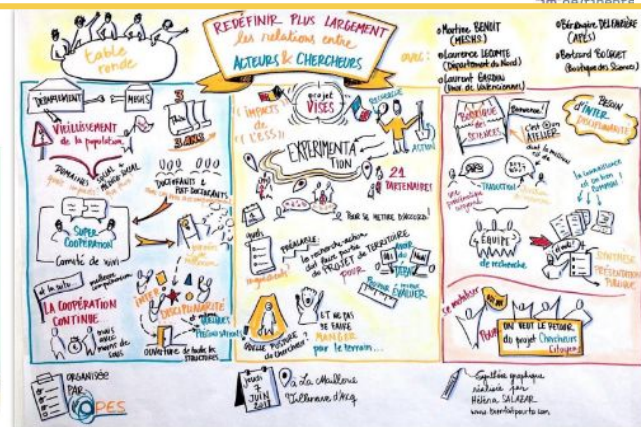 table ronde
REDÉFINIR PLUS LARGEMENT
les relations entre
ACTEURS & CHERCHEURS
avec :
Martine BENOIT
(MESHS)
Laurence LECOMTE
(Département du Nord)
Bérengère DELFAIRIÈRE
(APES)
Bertrand BOCQUET
(Boutique des Sciences)
DÉPARTEMENT
MESHS
VIEILLISSEMENT
de la population
3
3 ANS
DOMAINE SOCIAL
& MÉDICO-SOCIAL
DOCTORANTS &
POST-DOCTORANTS
SUPER
COOPÉRATION
Comité de suivi
et la suite
LA COOPÉRATION
CONTINUE...
mais
avec
moins de
sous
INTER
DISCIPLINARITÉ
PRÉCONISATIONS
OUVERTURE de toutes les
STRUCTURES
projet
VISES
"IMPACTS
de
l'ESS"
RECHERCHE
ACTION
EXPÉRIMENTA
TION
21
PARTENAIRES
POUR SE METTRE D'ACCORD!
PRÉALABLE:
la recherche-action
doit faire partie
du PROJET de TERRITOIRE
POUR
AVOIR
du
DÉPART
POUVOIR
ÉVALUER
QUELLE POSTURE
de chercheur?
ET NE PAS
SE FAIRE
MANGER
par le terrain...
BOUTIQUE
des
SCIENCES
Bienvenue!
c'est un
ATELIER
BESOIN
d'INTER
DISCIPLINARITÉ
TRADUCTION
la connaissance
est un bien
COMMUN!
une
problématique
ÉQUIPE
de recherche
SYNTHÈSE
PRÉSENTATION
PUBLIQUE
se mobiliser
POUR
ON VEUT LE RETOUR
du projet Chercheurs
Citoyens
ORGANISÉE
PAR
APES
jeudi
7
JUIN
à La Maillerie
Villeneuve d'Ascq
Synthèse graphique
réalisée par
Héléna SALAZAR